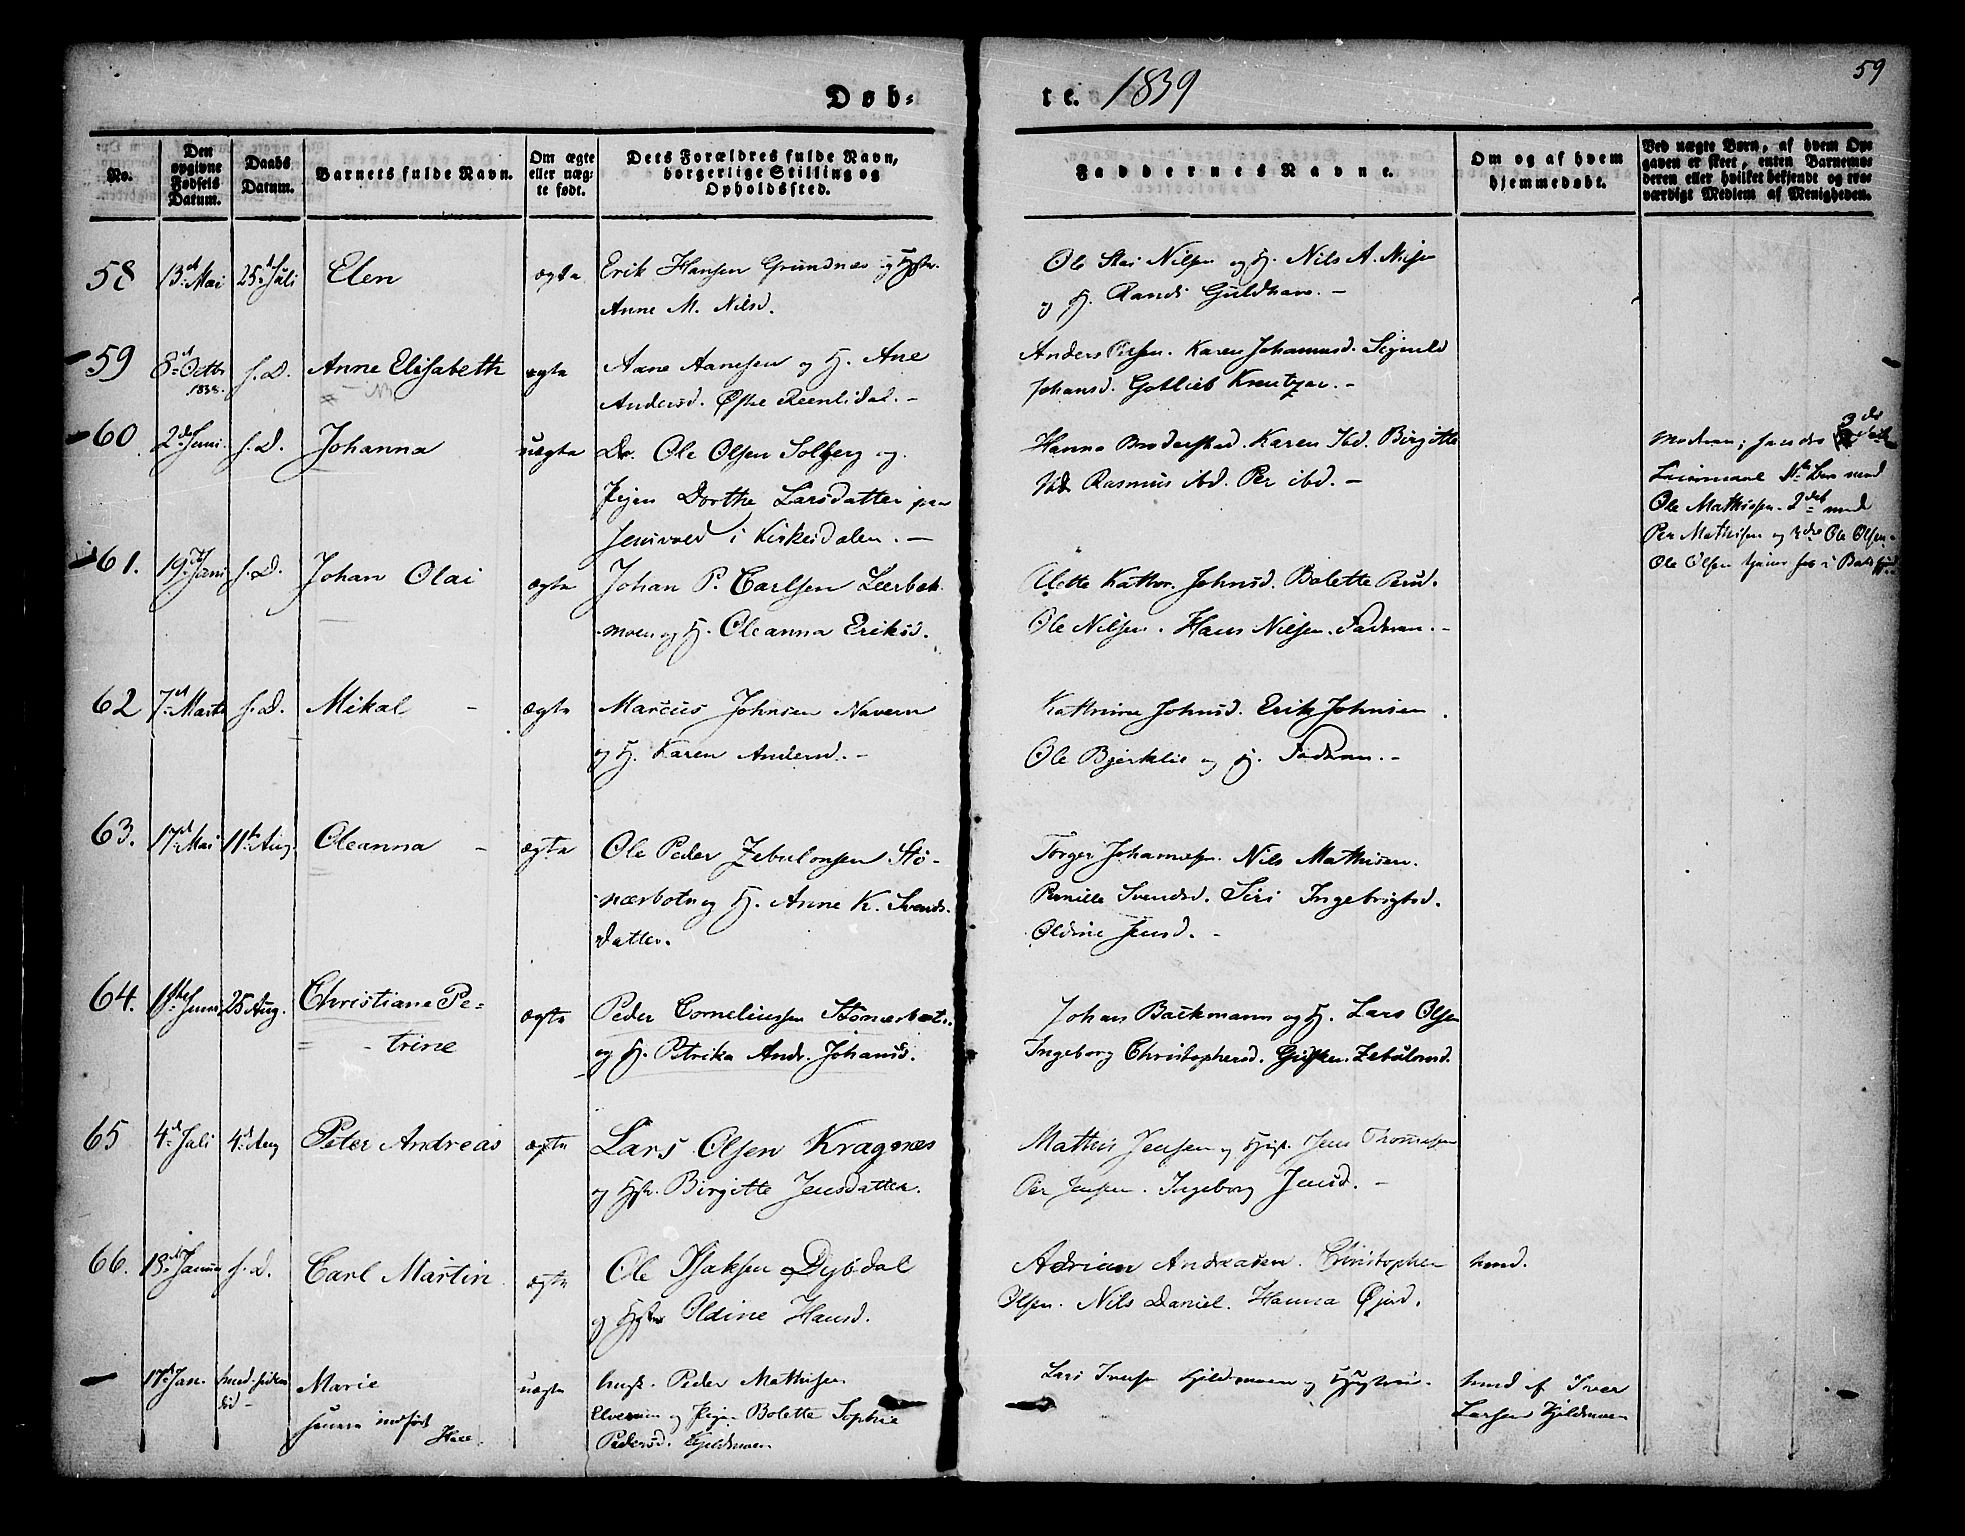 59
Døb-
te. 1839
No.
Den opgivne Fødsels Datum.
Daabs Datum.
Barnets fulde Navn.
Om ægte eller uæg-te født.
Dets Forældres fulde Navn, borgerlige Stilling og Opholdssted.
Faddernes Navne.
Om og af hvem hjemmedøbt.
Ved uægte Børn, af hvem Op-
gaven er skeet, enten Barnemo-
deren eller hvilket bekjendt og tro-
værdigt Medlem af Menigheden.
58 13de Mai 25de Juli Elen ægte Erik Hansen Grundnes og Hstr.
Anne M. Nilsd.
Ole Nilsen og H. Nils A.
og H. Randi Guldhav. -
59 8de Octbr 1838. s. D. Anne Elisabeth ægte Aane Aanesen og H. Ane
Andersd. Øfre Reenlidal. -
Anders Persen. Karen Johannesd.
Johansd. Gotlieb Kreutzer. -
60 2den Juni s. D. Johanna uægte Dr. Ole Olsen Solberg og
Pigen Dorthe Larsdatter paa
i Kirkesdalen. -
Hanna Broderstad. Karen Ibd. Birgitte
Ibd Rasmus ibd. Per ibd. -
Moderen; 3die
Leiermaal 1ste med
Ole Mathissen. 2det med
Per Mathisen og 3die Ole Olsen.
Ole Olsen tjener
61. 19de Juni s. D. Johan Olai ægte Johan P. Carlsen Leerbak-
moen og H. Oleanna Eriksd.
Alette Kathr. Johnsd. Bolette Rud.
Ole Nilsen. Hans Nilsen. Faderen. -
62 7de Marts s. D. Mikal - ægte Marcus Johnsen Navern
og H. Karen Andersd. -
Kathrine Johnsd. Erik Johnsen.
Ole Bjerklie og H. Faderen. -
63. 17de Mai 11te Aug Oleanna - ægte Ole Peder Zebulonsen Stø-
nærbotn og H. Anne K. Svends-
datter.
Torger Johannesen. Nils Mathisen.
Pernille Svendsd. Siri Ingebrigtsd.
Oldine Jensd. -
64. 1ste Juni 25 Aug. Christiane Pe-
trine ægte Peder Corneliussen Stønærbot.
og H. Petrika Andr. Johansd.
Johan Backmann og H. Lars Olsen
Ingeborg Christophersd. Zebulonsd.
65 4de Juli 4de Aug Peter Andreas ægte Lars Olsen Kragnes
og Hstr. Birgitte Jensdatter.
Mathis Jensen og Hust. Jens Thomesen
Per Jensen. Ingeborg Jensd. -
66. 18de Januar s. D. Carl Martin ægte Ole Isaksen Dybdal
og Hstr Oldine Hansd.
Adrian Andreasen. Christopher
Olsen. Nils Daniel. Hanna Øjord.
hmd.
- 17de Jan. Marie uægte Peder Mathisen
Elvevold og Pigen Bolette Sophie
Pedersd. Kjeldmoen
Lars Iversen Kjeldmoen og Hustru.
hmd af Iver
Larsen Kjeldmoen